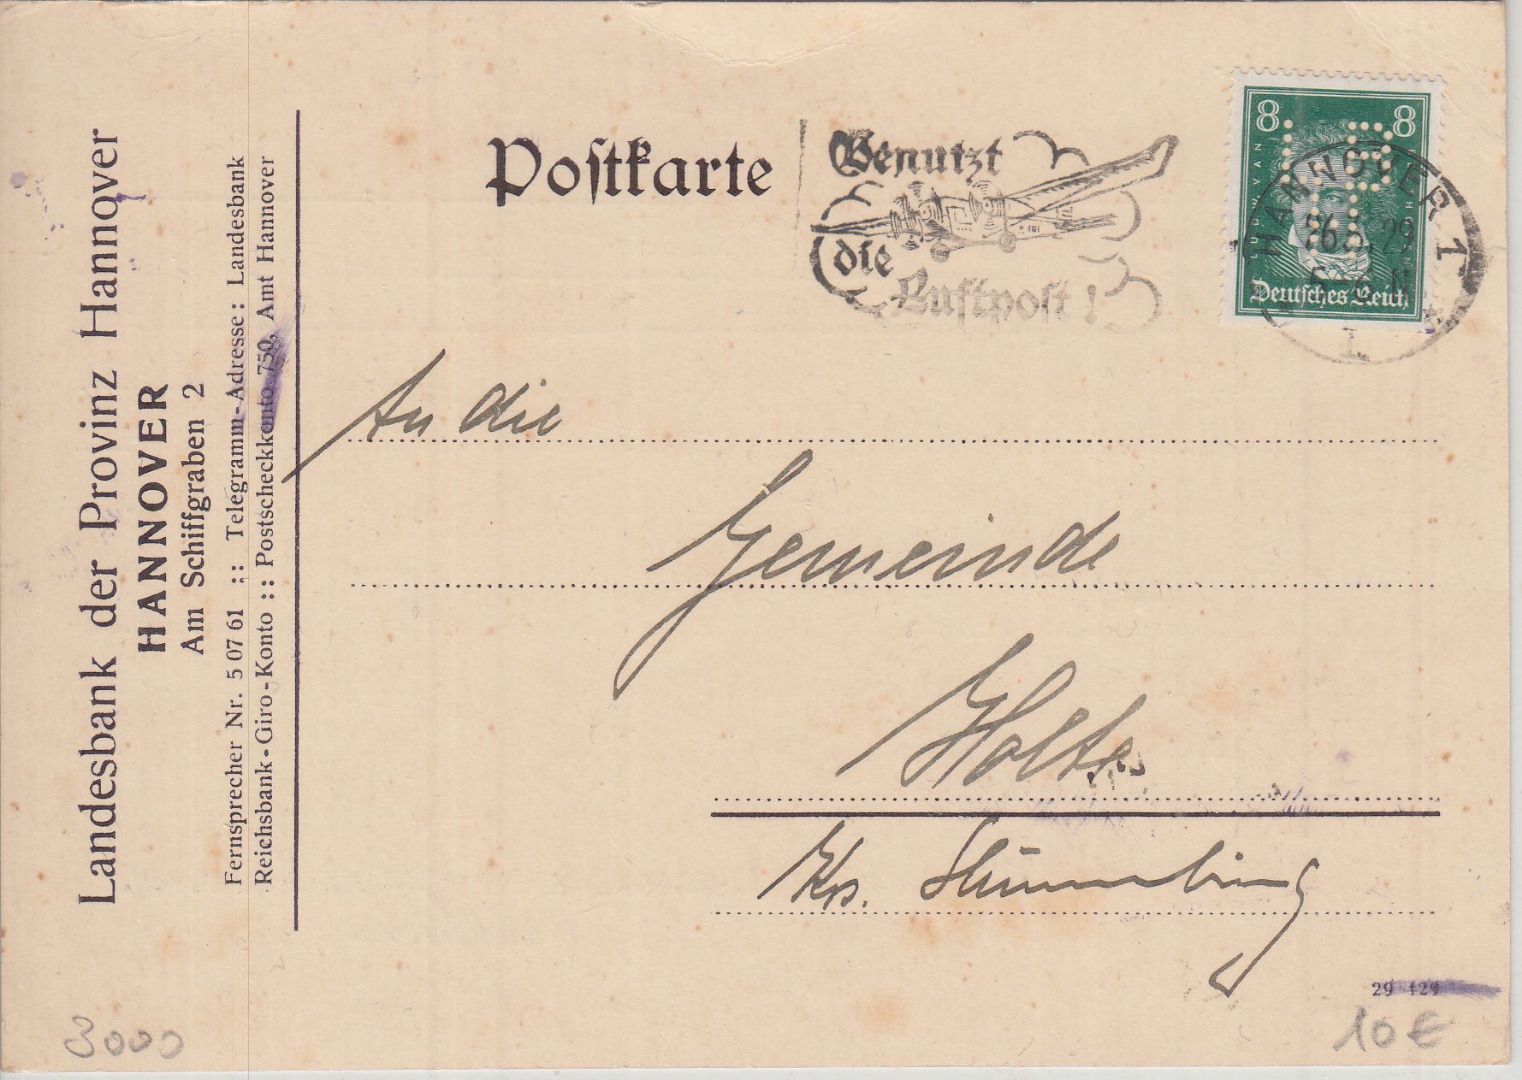 Landesbank der Provinz Hannover
HANNOVER
Am Schiffgraben 2
Fernsprecher Nr. 5 07 61 :: Telegramm-Adresse: Landesbank
Reichsbank-Giro-Konto :: Postscheckkonto 750, Amt Hannover
Postkarte
Benutzt
die
Luftpost!
8 8
LUDW. VAN
Deutsches Reich
HANNOVER 1
26.3.29
An die
Gemeinde
Holte
Krs.
29 429
3000
10 €